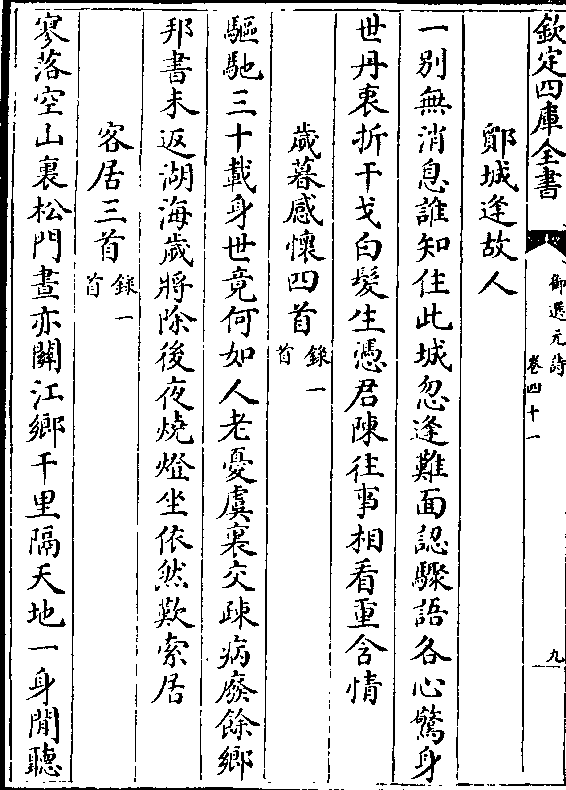 欽定四庫全書
御選元詩
卷四十一
九
鄮城逢故人
一別無消息誰知住此城忽逢難面認驟語各心驚身
世丹衷折干戈白髮生憑君陳往事相看重含情
歲暮感懷四首
錄一
首
驅馳三十載身世竟何如人老憂虞裏交踈病廢餘鄉
邦書未返湖海歲將除後夜燒燈坐依然歎索居
客居三首
錄一
首
寥落空山裏松門晝亦關江鄉千里隔天地一身閒聽